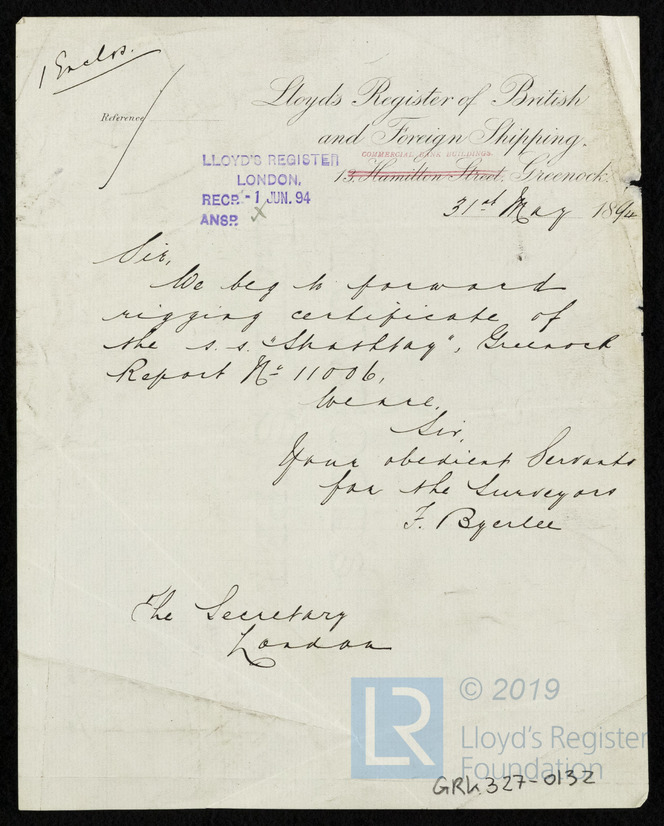 1 Enclos.
Reference
Lloyd's Register of British
and Foreign Shipping.
COMMERCIAL BANK BUILDINGS.
13, Hamilton Street, Greenock.
31st May 1894
LLOYD'S REGISTER
LONDON,
RECD. - 1 JUN. 94
ANSD. X
Sir,
We beg to forward
rigging certificate of
the s.s. "Strathtay", Greenock
Report No 11006.
We are,
Sir,
Your obedient Servants
for the Surveyors
F. Byerlee
The Secretary
London
LR
© 2019
Lloyd's Register
Foundation
GRK 327-0132